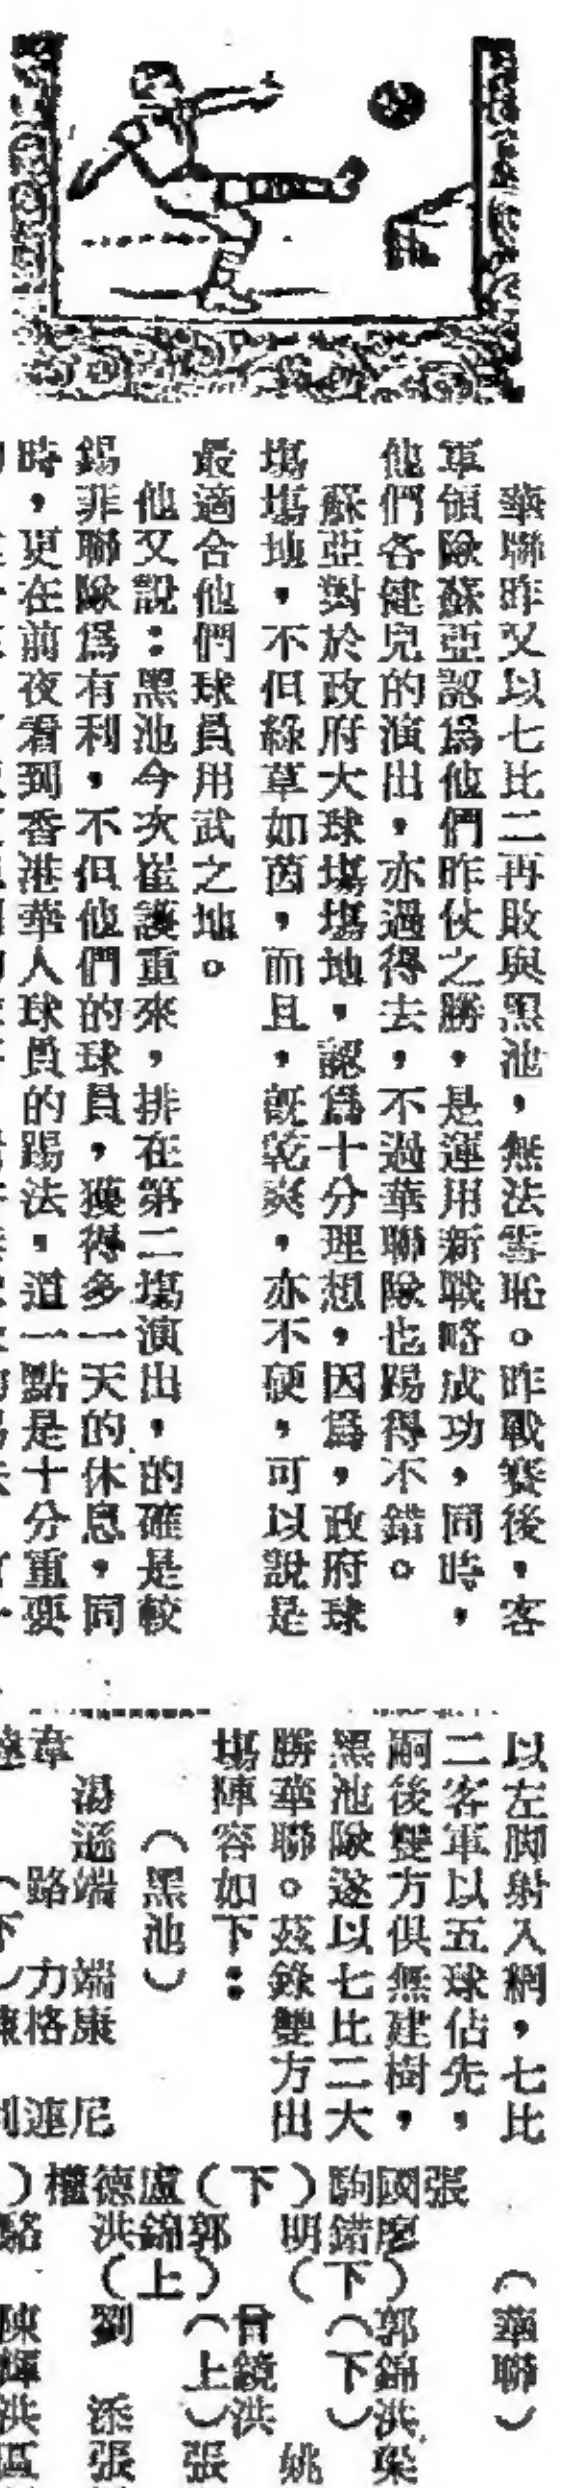 華聯昨又以七比二再敗與黑池，無法雪恥。昨戰賽後，客
軍領隊蘇亞認爲他們昨仗之勝，是運用新戰略成功，同時，
他們各健兒的演出，亦過得去，不過華聯隊也踢得不錯。
蘇亞對於政府大球塲塲地，認爲十分理想，因爲，政府球
塲塲地，不但綠草如茵，而且，旣乾爽，亦不硬，可以說是
最適合他們球員用武之地。
他又說：黑池今次崔護重來，排在第二塲演出，的確是較
錫菲聯隊爲有利，不但他們的球員，獲得多一天的休息，同
時，更在前夜看到香港華人球員的踢法，這一點是十分重要
以左脚射入網，七比
二客軍以五球佔先，
嗣後雙方俱無建樹，
黑池隊遂以七比二大
勝華聯。茲錄雙方出
塲陣容如下：
（黑池）
湯遜端 端康 尼
韋 路 力格 連
（華聯）
張國駒（下）盧德權
廖錯明 郭錦洪 駱
（下） （上）
郭錦洪 曾鏡洪 劉 陳輝洪
（下） （上）
梁 姚 張 添張 區